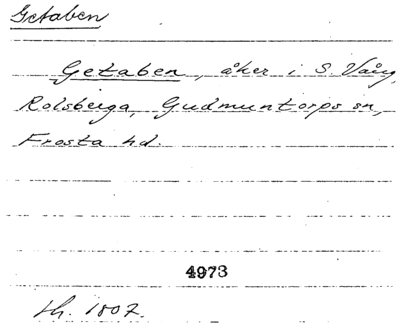 Getaben
Getaben, åker i S. Vång,
Rolsberga, Gudmuntorps sn,
Frosta hd.
4973
sh. 1807.